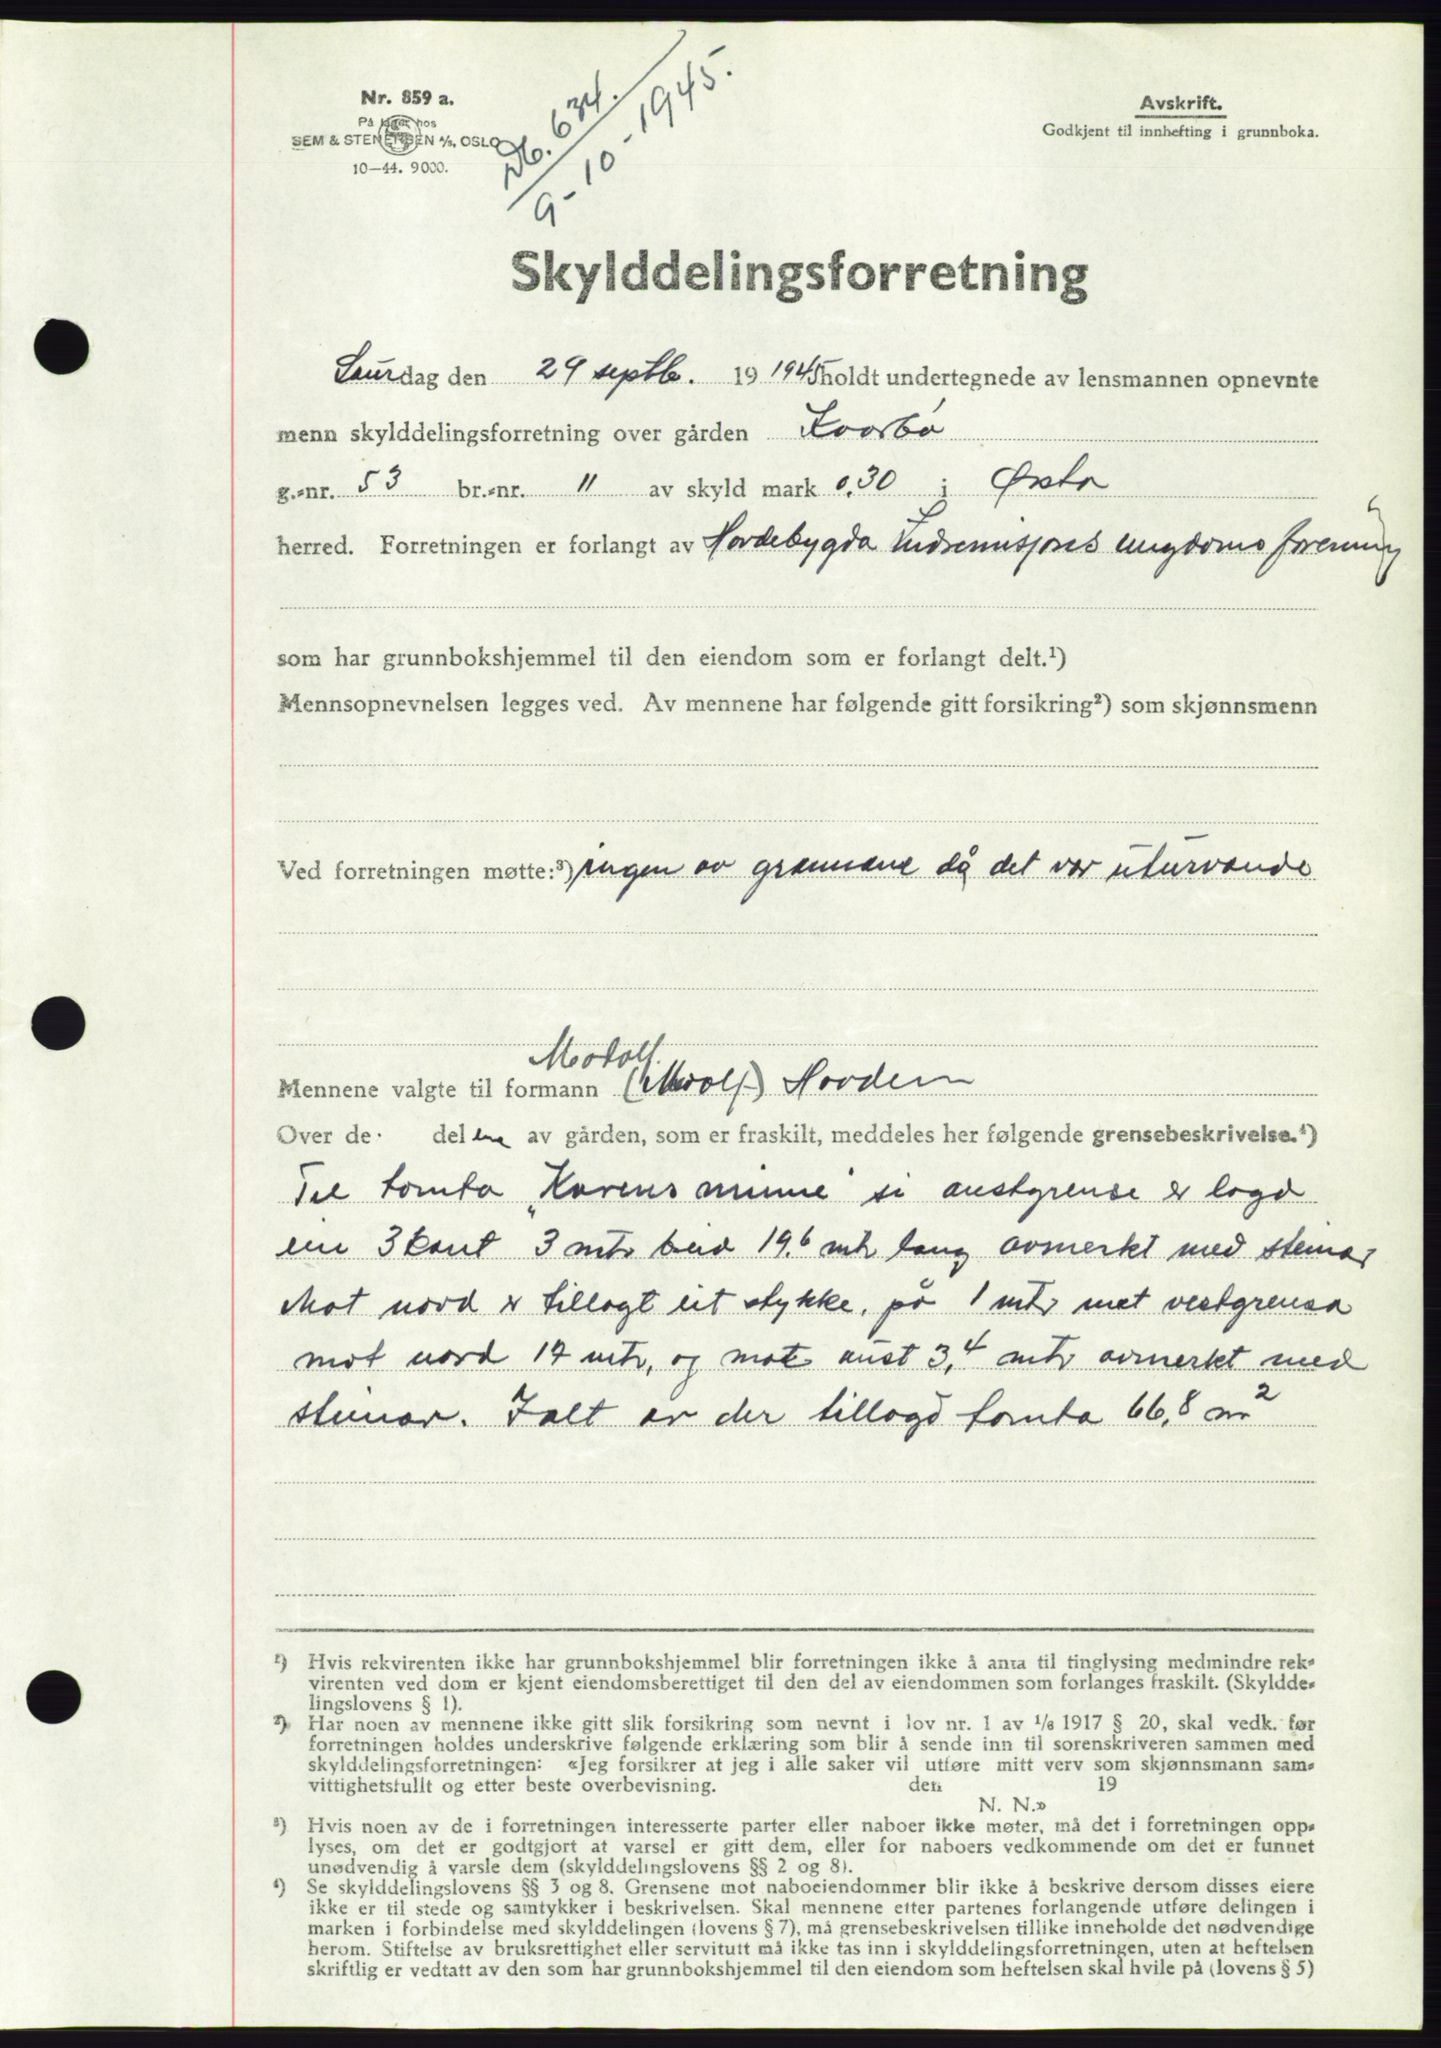 Nr. 859 a.
På lager hos
SEM & STENERSEN A/S, OSLO
10—44. 9000.
Db. 634.
9-10-1945.
Avskrift.
Godkjent til innhefting i grunnboka.
Skylddelingsforretning
Laurdag den 29 septb. 19 1945 holdt undertegnede av lensmannen opnevnte
menn skylddelingsforretning over gården
g.-nr. 53 br.-nr. 11 av skyld mark 0,30 i Ørsta
herred. Forretningen er forlangt av Hovdebygda Indremisjons ungdoms forening
som har grunnbokshjemmel til den eiendom som er forlangt delt.¹)
Mennsopnevnelsen legges ved. Av mennene har følgende gitt forsikring²) som skjønnsmenn
Ved forretningen møtte:³) ingen av grannane då det var uturvande
Modolf
Mennene valgte til formann Hovden
Over de. delene av gården, som er fraskilt, meddeles her følgende grensebeskrivelse.⁴)
Til tomta „Karens minne" si austgrense er lagd
ein 3kant 3 mtr beid 19,6 mtr lang avmerkt med steinar
Mot nord er tillagt eit stykke, på 1 mtr mot vestgrensa
mot nord 17 mtr, og mot aust 3,4 mtr avmerkt med
steinar. Ialt er der tillagd tomta 66,8 m²
¹) Hvis rekvirenten ikke har grunnbokshjemmel blir forretningen ikke å anta til tinglysing medmindre rek-
virenten ved dom er kjent eiendomsberettiget til den del av eiendommen som forlanges fraskilt. (Skyldde-
lingslovens § 1).
²) Har noen av mennene ikke gitt slik forsikring som nevnt i lov nr. 1 av 1/6 1917 § 20, skal vedk. før
forretningen holdes underskrive følgende erklæring som blir å sende inn til sorenskriveren sammen med
skylddelingsforretningen: «Jeg forsikrer at jeg i alle saker vil utføre mitt verv som skjønnsmann sam-
vittighetsfullt og etter beste overbevisning. den 19
N. N.»
³) Hvis noen av de i forretningen interesserte parter eller naboer ikke møter, må det i forretningen opp-
lyses, om det er godtgjort at varsel er gitt dem, eller for naboers vedkommende om det er funnet
unødvendig å varsle dem (skylddelingslovens §§ 2 og 8).
⁴) Se skylddelingslovens §§ 3 og 8. Grensene mot naboeiendommer blir ikke å beskrive dersom disses eiere
ikke er til stede og samtykker i beskrivelsen. Skal mennene etter partenes forlangende utføre delingen i
marken i forbindelse med skylddelingen (lovens § 7), må grensebeskrivelsen tillike inneholde det nødvendige
herom. Stiftelse av bruksrettighet eller servitutt må ikke tas inn i skylddelingsforretningen, uten at heftelsen
skriftlig er vedtatt av den som har grunnbokshjemmel til den eiendom som heftelsen skal hvile på (lovens § 5)